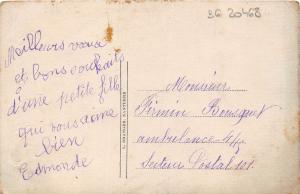 3G 20468
Meilleurs vœux
et bons souhaits
d'une petite fille
qui vous aime
bien
Edmonde
Monsieur
Firmin Bousquet
ambulance
Secteur Postal 101